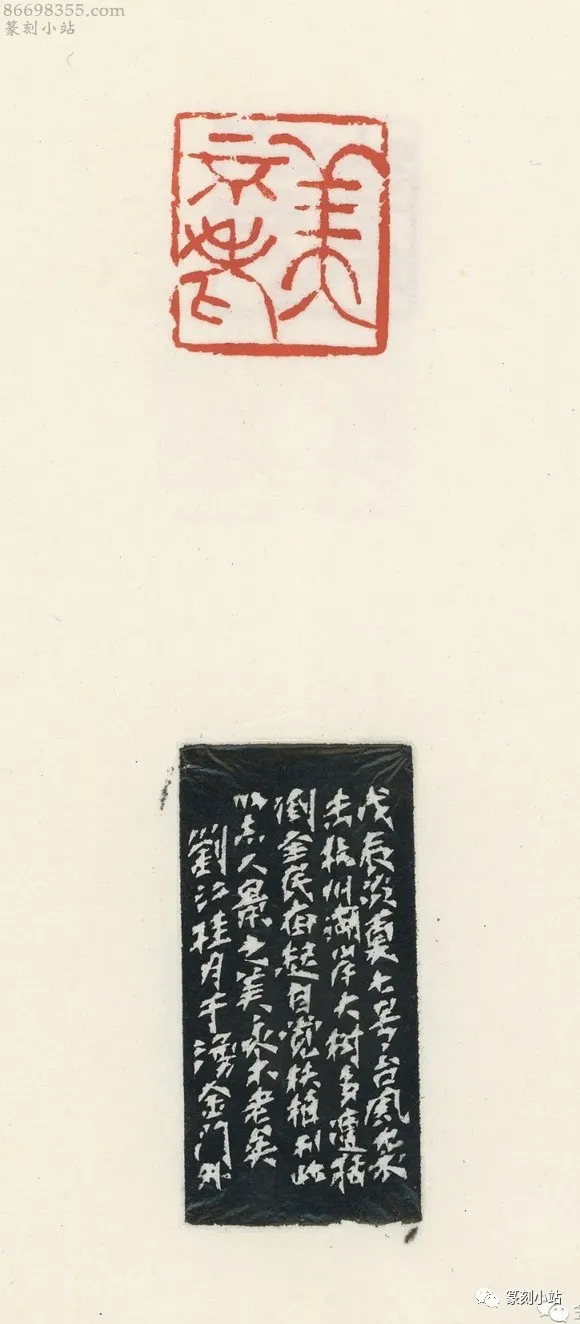 86698355.com
篆刻小站
美
不老
戊辰炎夏七号台風袭
击杭州湖岸大树多遭括
倒全民奋起自觉扶植刊此
以志人景之美永不老矣
劉江桂月于湧金门外
篆刻小站